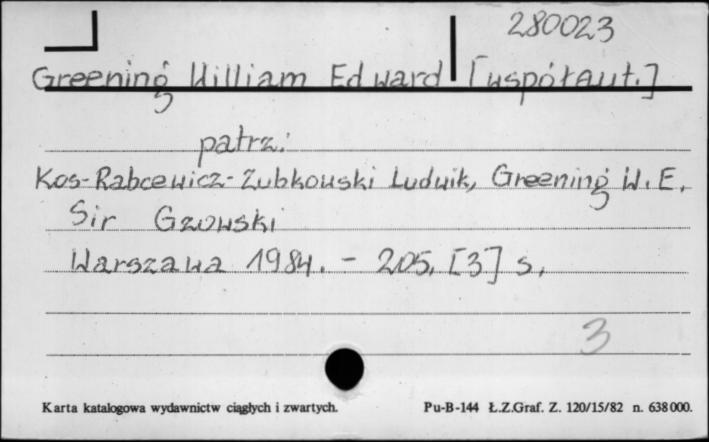 280023
Greening William Edward [współaut.]
patrz:
Kos-Rabcewicz-Zubkowski Ludwik, Greening W. E.
Sir Gzowski
Warszawa 1984. - 205, [3] s.
3
Karta katalogowa wydawnictw ciągłych i zwartych. Pu-B-144 Ł.Z.Graf. Z. 120/15/82 n. 638000.